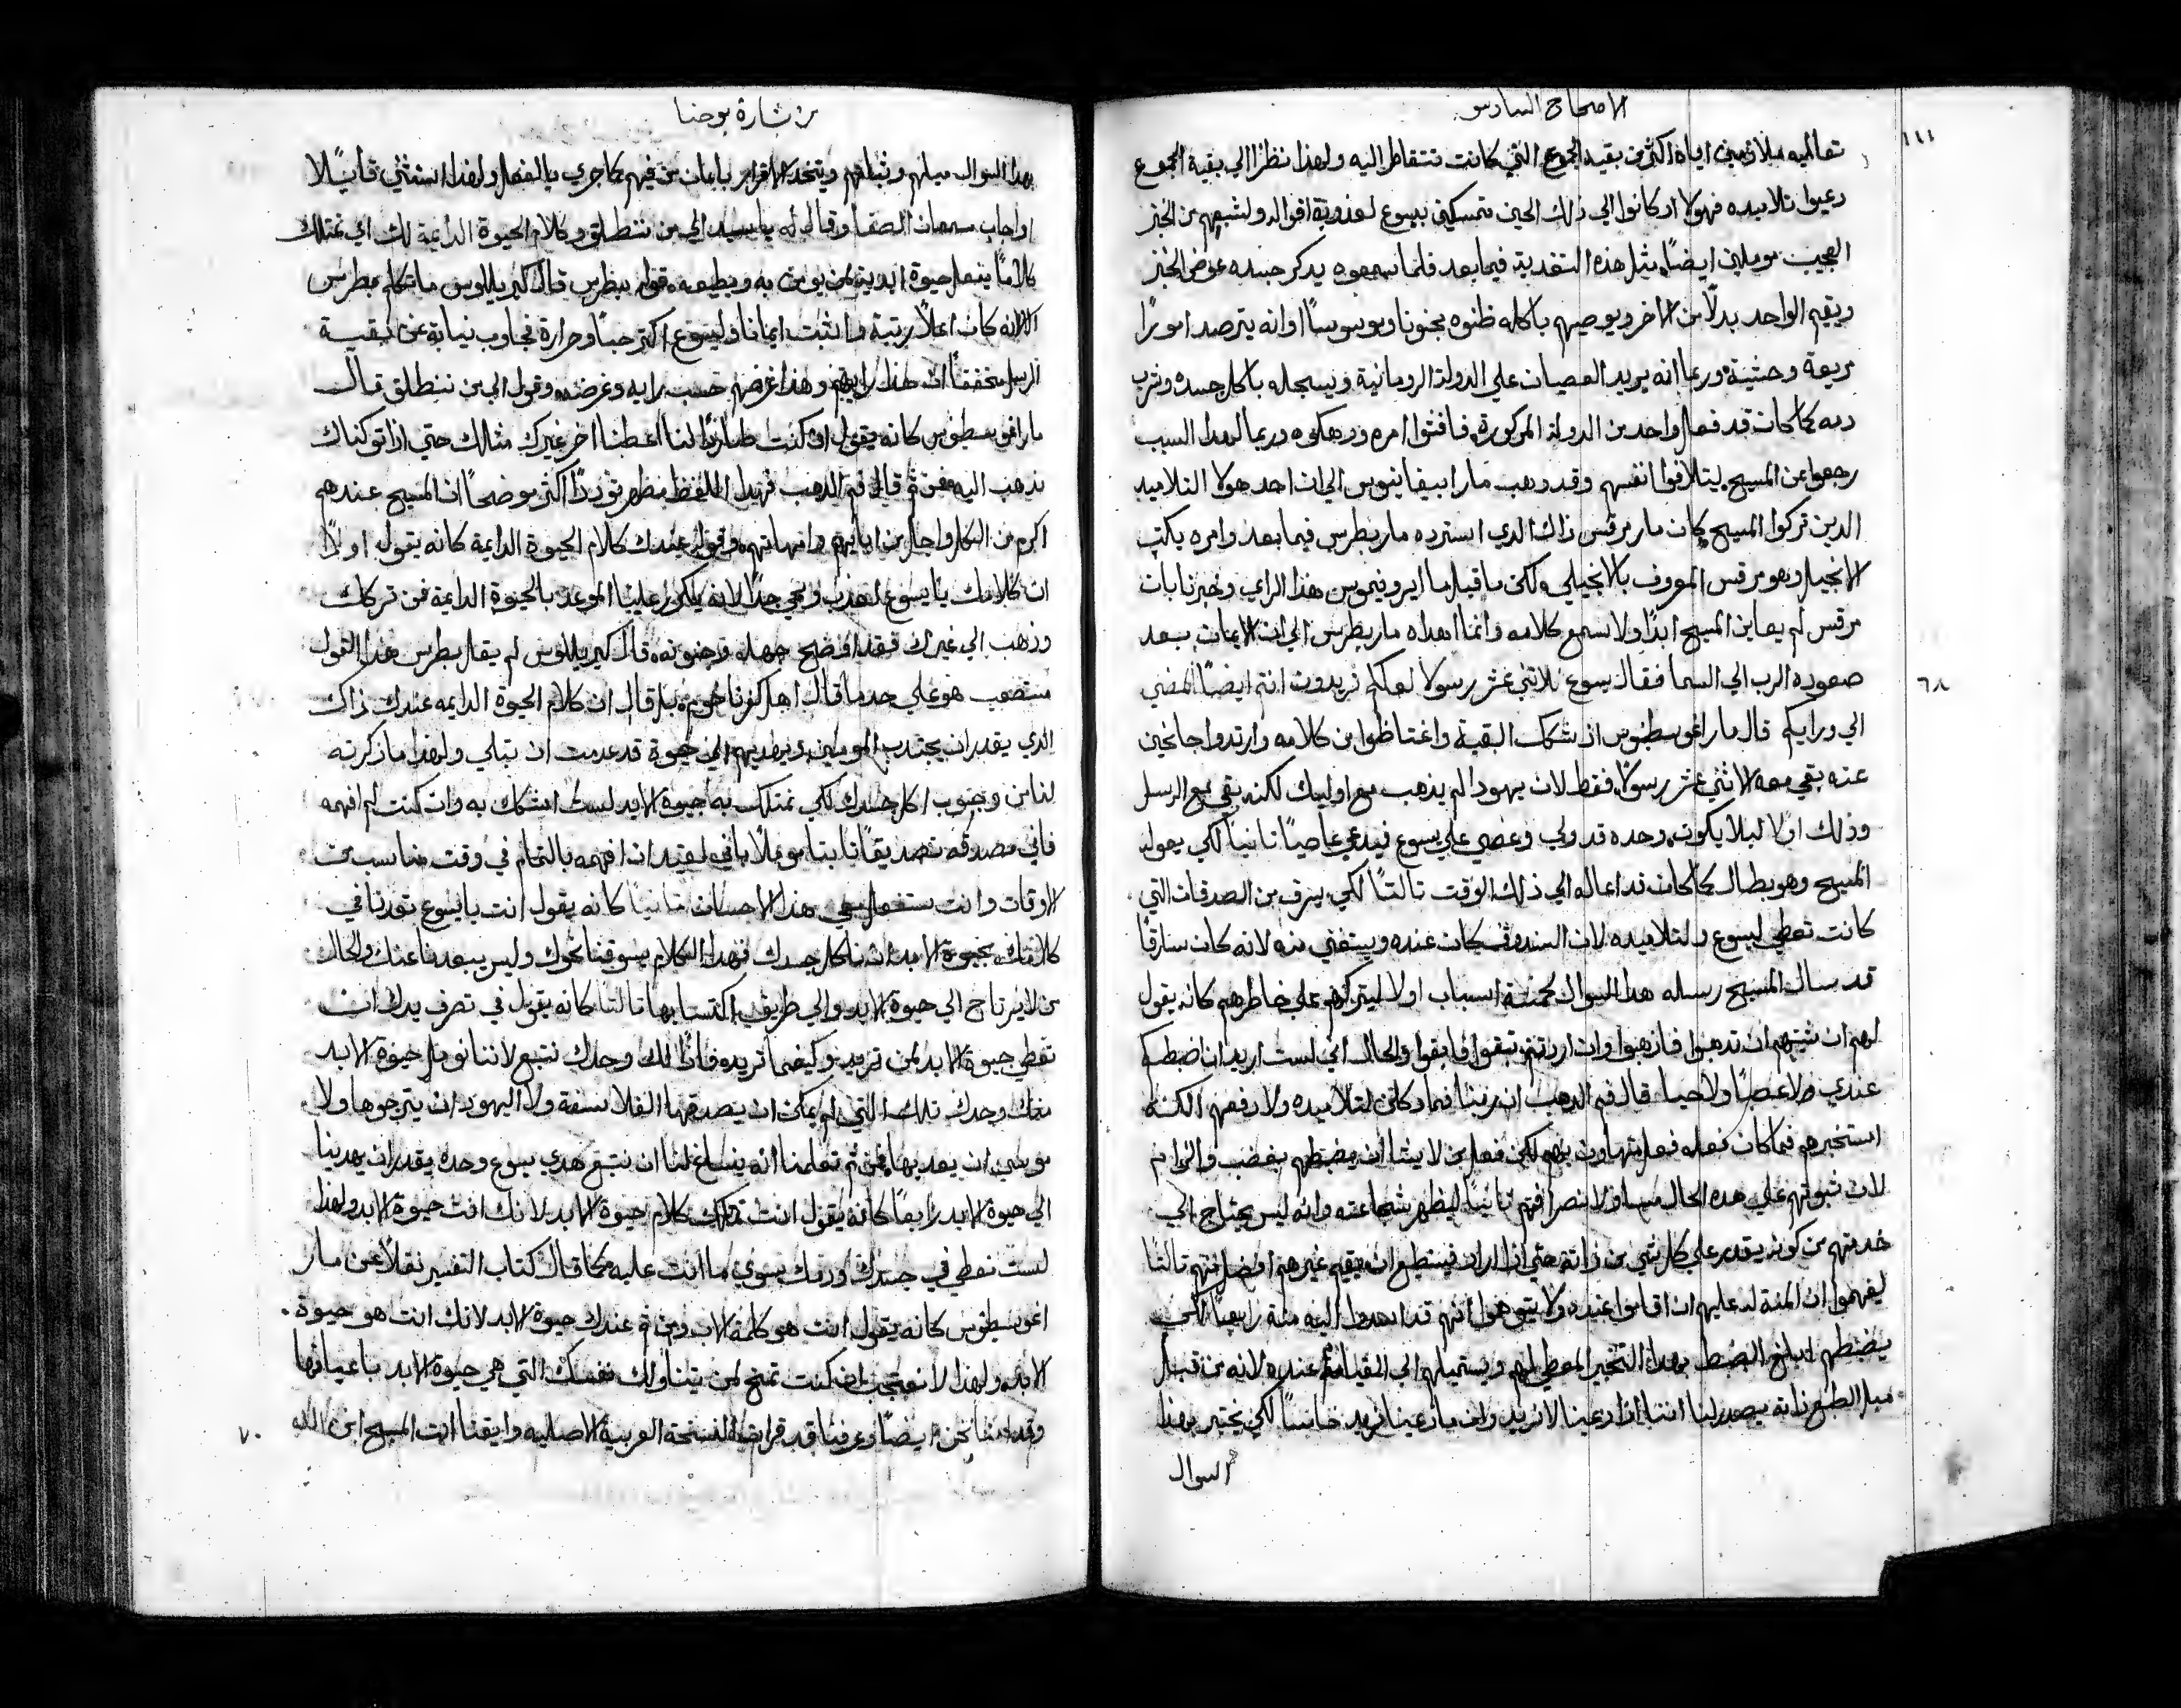 الاصحاح السادس
١١١
تعاليمه ملازمين اياه اكثر من بقية الجموع التي كانت تتقاطر اليه ولهذا نظرًا الي بقية الجموع
دعيوا تلاميده فهولا اد كانوا الي ذلك الحين متمسكين بيسوع لعذوبة اقواله ولشبعهم من الخبز
العجيب موملين ايضًا مثل هذه التقدية فيما بعد فلما سمعوه يدكر جسده عوض الخبز
ويقيم الواحد بدلًا من الاخر ويوصيهم باكله ظنوه مجنونا وموسوسًا او انه يترصد امورًا
مريعة وحشية وربما انه يريد العصيان علي الدولة الرومانية ويسجله باكل جسده وشرب
دمه كما كان قد فعل واحد من الدولة المدكورة فافشوا امره وربما لهدا السبب
رجعوا عن المسيح ليتلافوا انفسهم وقد دهب مار ابيفانيوس الي ان احد هولا التلاميد
الدين تركوا المسيح كان مار مرقس ذاك الدي استرده مار بطرس فيما بعد وامره يكتب
الانجيل وهو مرقس المعروف بالانجيلي ولكن ما قبل مار ايرونيموس هذا الراي وخبرنا بان
مرقس لم يعاين المسيح ابدًا ولا سمع كلامه وانما اهداه مار بطرس الي الايمان بعد
٦٨
صعوده الرب الي السما فقال يسوع للاثني عشر رسولا لعلكم تريدون انتم ايضًا المضي
الي ورايكم قال مار اغوسطينوس اذ شكك البقية واغتاظوا من كلامه وارتدوا جانحين
عنه بقي معه الاثني عشر رسولًا فقط لان يهودا لم يذهب مع اوليك لكنه بقي مع الرسل
وذلك اولا ليلا يكون وحده قد ولي وعصي علي يسوع فيدعي عاصيًا ثانيًا لكي يعوله
المسيح وهو بطال كما كان قد اعاله الي ذلك الوقت ثالثًا لكي يسرق من الصدقات التي
كانت تعطي ليسوع ولتلاميده لان الصندوق كان عنده ويستغني منه لانه كان سارقًا
قد سال المسيح رسله هدا السوال لخمسة اسباب اولا ليتركهم علي خاطرهم كانه يقول
لهم ان شيتم ان تدهبوا فاذهبوا وان اردتم تبقوا فابقوا والحال اني لست اريد ان اضبطكم
عندي لا غصبًا ولا حيا قال فم الدهب ان ربنا فما دكان لتلاميده ولا دفعهم لكنه
استخبرهم فما كان فعله فعل متهاون بهم لكن فعل من لا يشا ان يضبطهم بغضب والزام
لان ثبوتهم علي هده الحال مساو لانصرافهم ثانيًا ليظهر شجاعته وانه ليس يحتاج الي
خدمتهم من كونه يقدر علي كل شي من ذاته حتي اذا اراد فيستطيع ان يقيم غيرهم افضل منهم ثالثًا
ليفهموا ان المنة له عليهم ان اقاموا عنده ولا يتوهموا انهم قد اهدوا اليه منة رابعًا لكي
يضبطهم ابلغ الضبط بهدا التخيير المعطي لهم ويستميلهم الي المقيامة عنده لانه من قبل
ميل الطبع ذاته يصدر لنا اننا اذا دعينا لا نريد وان ما دعينا نريد خامسًا لكي يختبر بهذا
السوال
من بشارة يوحنا
بهدا السوال ميلهم وثباتهم ويتخد الاقرار بايمان من فيهم كما جري بالفعل ولهذا استثني قايلًا
اواجاب سمعان الصفا وقال له يا سيد الي من ننطلق وكلام الحيوة الدايمة لك اي تمتلك
كلامًا يفعل حيوة ابدية لمن يومن به ويطيعه قول بطرس قال كيريللوس ما تكلم بطرس
الا لانه كان اعلا رتبة واثبت ايمانًا وليسوع اكثر حبًا وحرارة فجاوب نيابة عن بقية
الرسل محققًا ان هذا رايهم وهذا غرضهم حسب رايه وغرضه وقول الي من ننطلق قال
مار اغوسطينوس كانه يقول ان كنت طاردًا لنا اعطنا اخر غيرك مثالك حتي اذا تركناك
ندهب اليه فمن ثم قال فم الدهب فهدا اللفظ يظهر توددًا اكثر موضحًا ان المسيح عندهم
اكرم من الكل واجل من ابايهم وامهاتهم وقوله عندك كلام الحيوة الدايمة كانه يقول اولًا
ان كلامك يا يسوع لعذب ومحي جدًا لانه يكرر علينا الموعد بالحيوة الدايمة فمن تركك
وذهب الي غيرك فقد اوضح جهله وجنونه قال كيريللوس لم يقل بطرس هذا القول
مستصعب هو علي حد ما قال اهل كفرناحوم بل قال ان كلام الحيوة الدايمه عندك ذاك
الدي يقدر ان يجتدب المومنين ويهديهم الي حيوة قد عدمت ان تبلي ولهذا ما ذكرته
لنا من وجوب اكل جسدك لكي نمتلك به حيوة الابد لست اشكك به وان كنت لم افهمه
فاني مصدقه تصديقًا ثابتا موملًا باني لعتيد ان افهمه بالتمام في وقت مناسب من
الاوقات وانت ستفعل معي هذا الاحسان ثانيًا كانه يقول انت يا يسوع توعدنا في
كلامك بحيوة الابد ان ناكل جسدك فهدا الكلام يسوقنا نحوك وليس يبعدنا عنك والحال
من لا يرتاح الي حيوة الابد والي طريق اكتسابها ثالثًا كانه يقول في تصرف يدك ان
تعطي حيوة الابد لمن تريد وكيفما تريده فاذًا لك وحدك نتبع لاننا نومل حيوة الابد
منك وحدك تلك التي لم يمكن ان يصدقها الفلاسفة ولا اليهود ان يترجوها ولا
موسي ان يعد بها فمن ثم تعلمنا انه ينساغ لنا ان نتبع هدي يسوع وحده يقدر ان يهدينا
الي حيوة الابد رابعًا كانه يقول انت تملك كلام حيوة الابد لانك انت حيوة الابد ولهذا
لست تعطي في جسدك ودمك سوي ما انت عليه كما قال كتاب التفسير نقلًا عن مار
اغوسطينوس كانه يقول انت هو كلمة الاب ومن ثم عندك حيوة الابد لانك انت هو حيوة
الابد ولهذا لا نتعجب ان كنت تمنح لمن يتناولك نفسك التي هي حيوة الابد باعيانها
٧٠
وقد امنا نحن ايضًا وعرفنا قد قرات النسخة العربية الاصليه وايقنا انت المسيح ابن الله